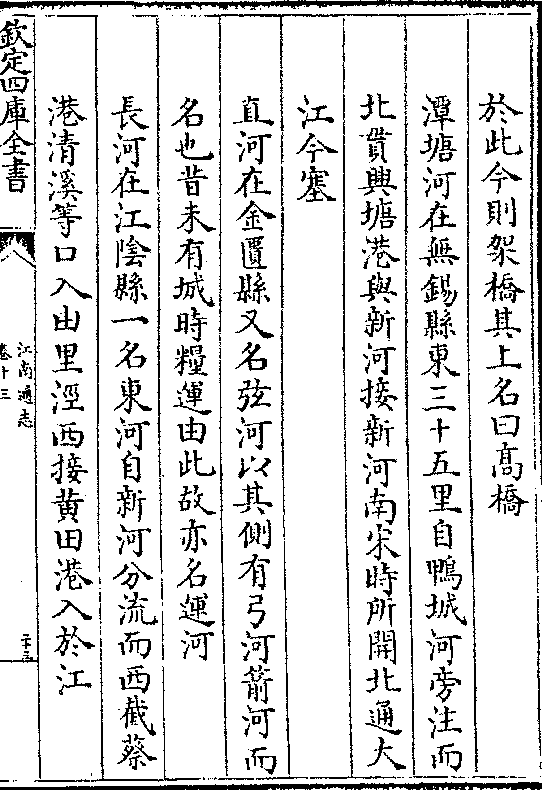 於此今則架橋其上名曰髙橋
潭塘河在無錫縣東三十五里自鴨城河旁注而
北貫興塘港與新河接新河南宋時所開北通大
江今塞
直河在金匱縣又名弦河以其側有弓河箭河而
名也昔未有城時糧運由此故亦名運河
長河在江陰縣一名東河自新河分流而西截蔡
港清溪等口入由里涇西接黄田港入於江
欽定四庫全書
江南通志
卷十三